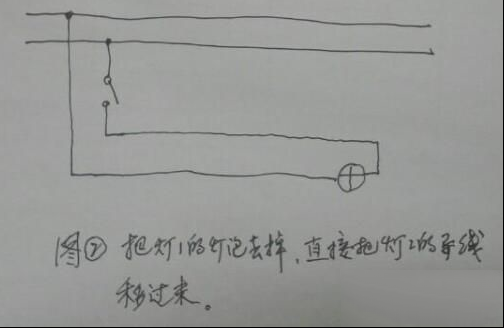 图② 把灯1的灯泡去掉，直接把灯2的导线
移过来。